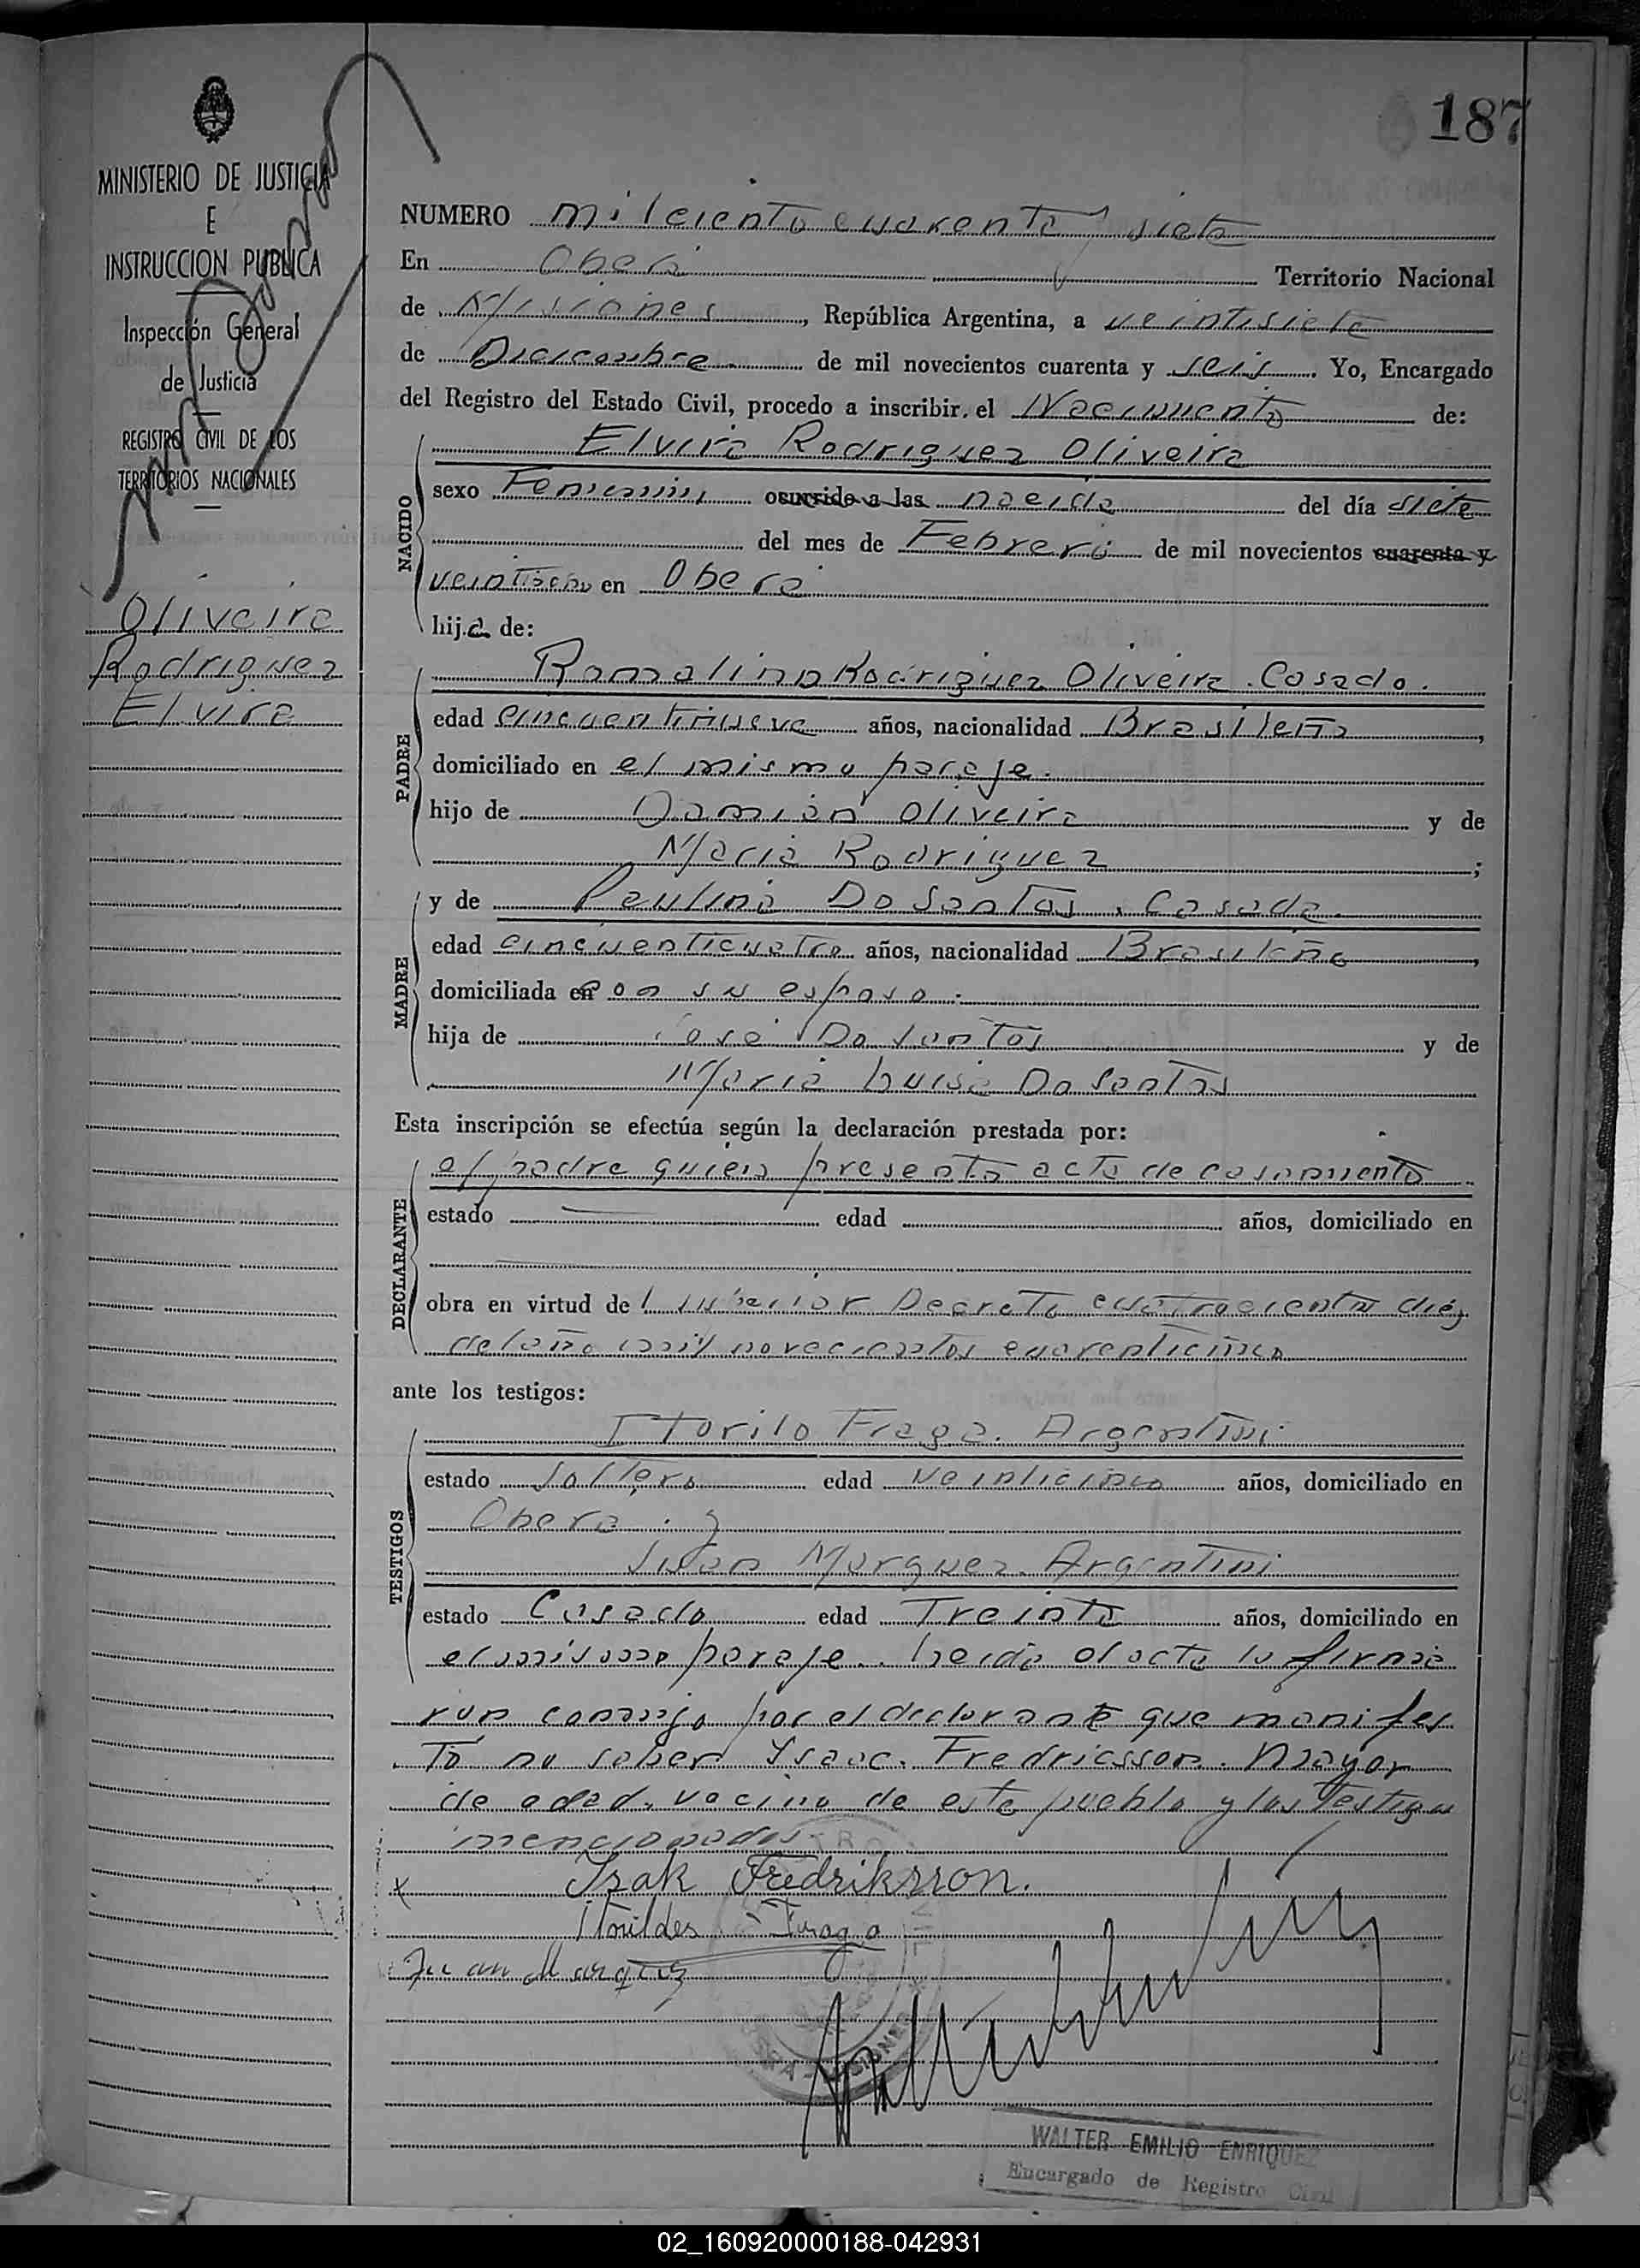 187
MINISTERIO DE JUSTICIA
E
INSTRUCCION PUBLICA
Inspección General
de Justicia
REGISTRO CIVIL DE LOS
TERRITORIOS NACIONALES
Oliveira
Rodriguez
Elvira
NUMERO mil ciento cuarenta y siete
En Oberá Territorio Nacional
de Misiones, República Argentina, a veintisiete
de Diciembre de mil novecientos cuarenta y seis. Yo, Encargado
del Registro del Estado Civil, procedo a inscribir, el Nacimiento de:
Elvira Rodriguez Oliveira
NACIDO
sexo Femenino ocurrido a las nacida del día siete
del mes de Febrero de mil novecientos cuarenta y
en Oberá
hija de:
PADRE
Romalino Rodriguez Oliveira. Casado.
edad cincuentinueve años, nacionalidad Brasileña,
domiciliado en el mismo paraje.
hijo de Damián Oliveira y de
Maria Rodriguez;
MADRE
y de Paulina Do Santos. Casada.
edad cincuenticuatro años, nacionalidad Brasileña,
domiciliada en con su esposo.
hija de José Do Santos y de
Maria Luisa Do Santos
Esta inscripción se efectúa según la declaración prestada por:
DECLARANTE
el padre quien presenta acta de casamiento
estado edad años, domiciliado en
obra en virtud del superior Decreto cuatrocientos diez
del año mil novecientos cuarenticinco
ante los testigos:
TESTIGOS
Fraga. Argentino
estado soltero edad veinticinco años, domiciliado en
Oberá. y
Juan Marquez. Argentino
estado Casado edad Treinta años, domiciliado en
el mismo paraje. Leída el acta la firma
ron conmigo por el declarante que manifes
tó no saber Ysaac. Fredricsson. mayor
de edad, vecino de este pueblo y los testigos
mencionados.
x Isak Fredriksson.
Fraga
Juan Marquez
WALTER EMILIO ENRIQUEZ
Encargado de Registro Civil
02_160920000188-042931